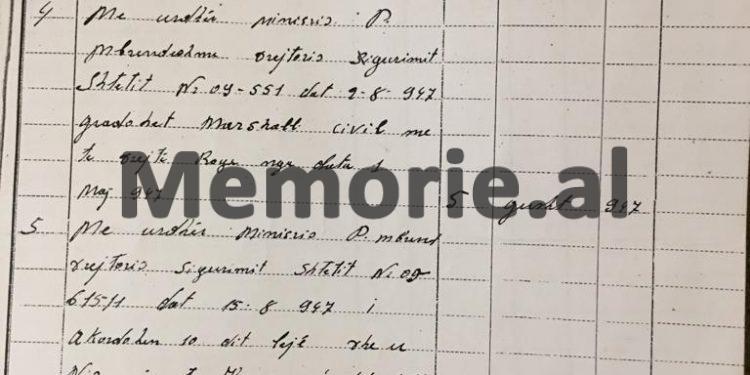 4 Me urdhër ministris P.
Mbrendshme drejtoris Sigurimit
Shtetit Nr 09-551 dat 2-8-947
gradohet Marshall civil me
te drejte Roge nga data 1
Maj 947
5 gusht 947
Memorie.al
5 Me urdhër Ministris P. mbrend
drejtoris Sigurimit Shtetit Nr 09
615/1 dat 15-8 947 i
Akordohen 10 dit lejë dhe u